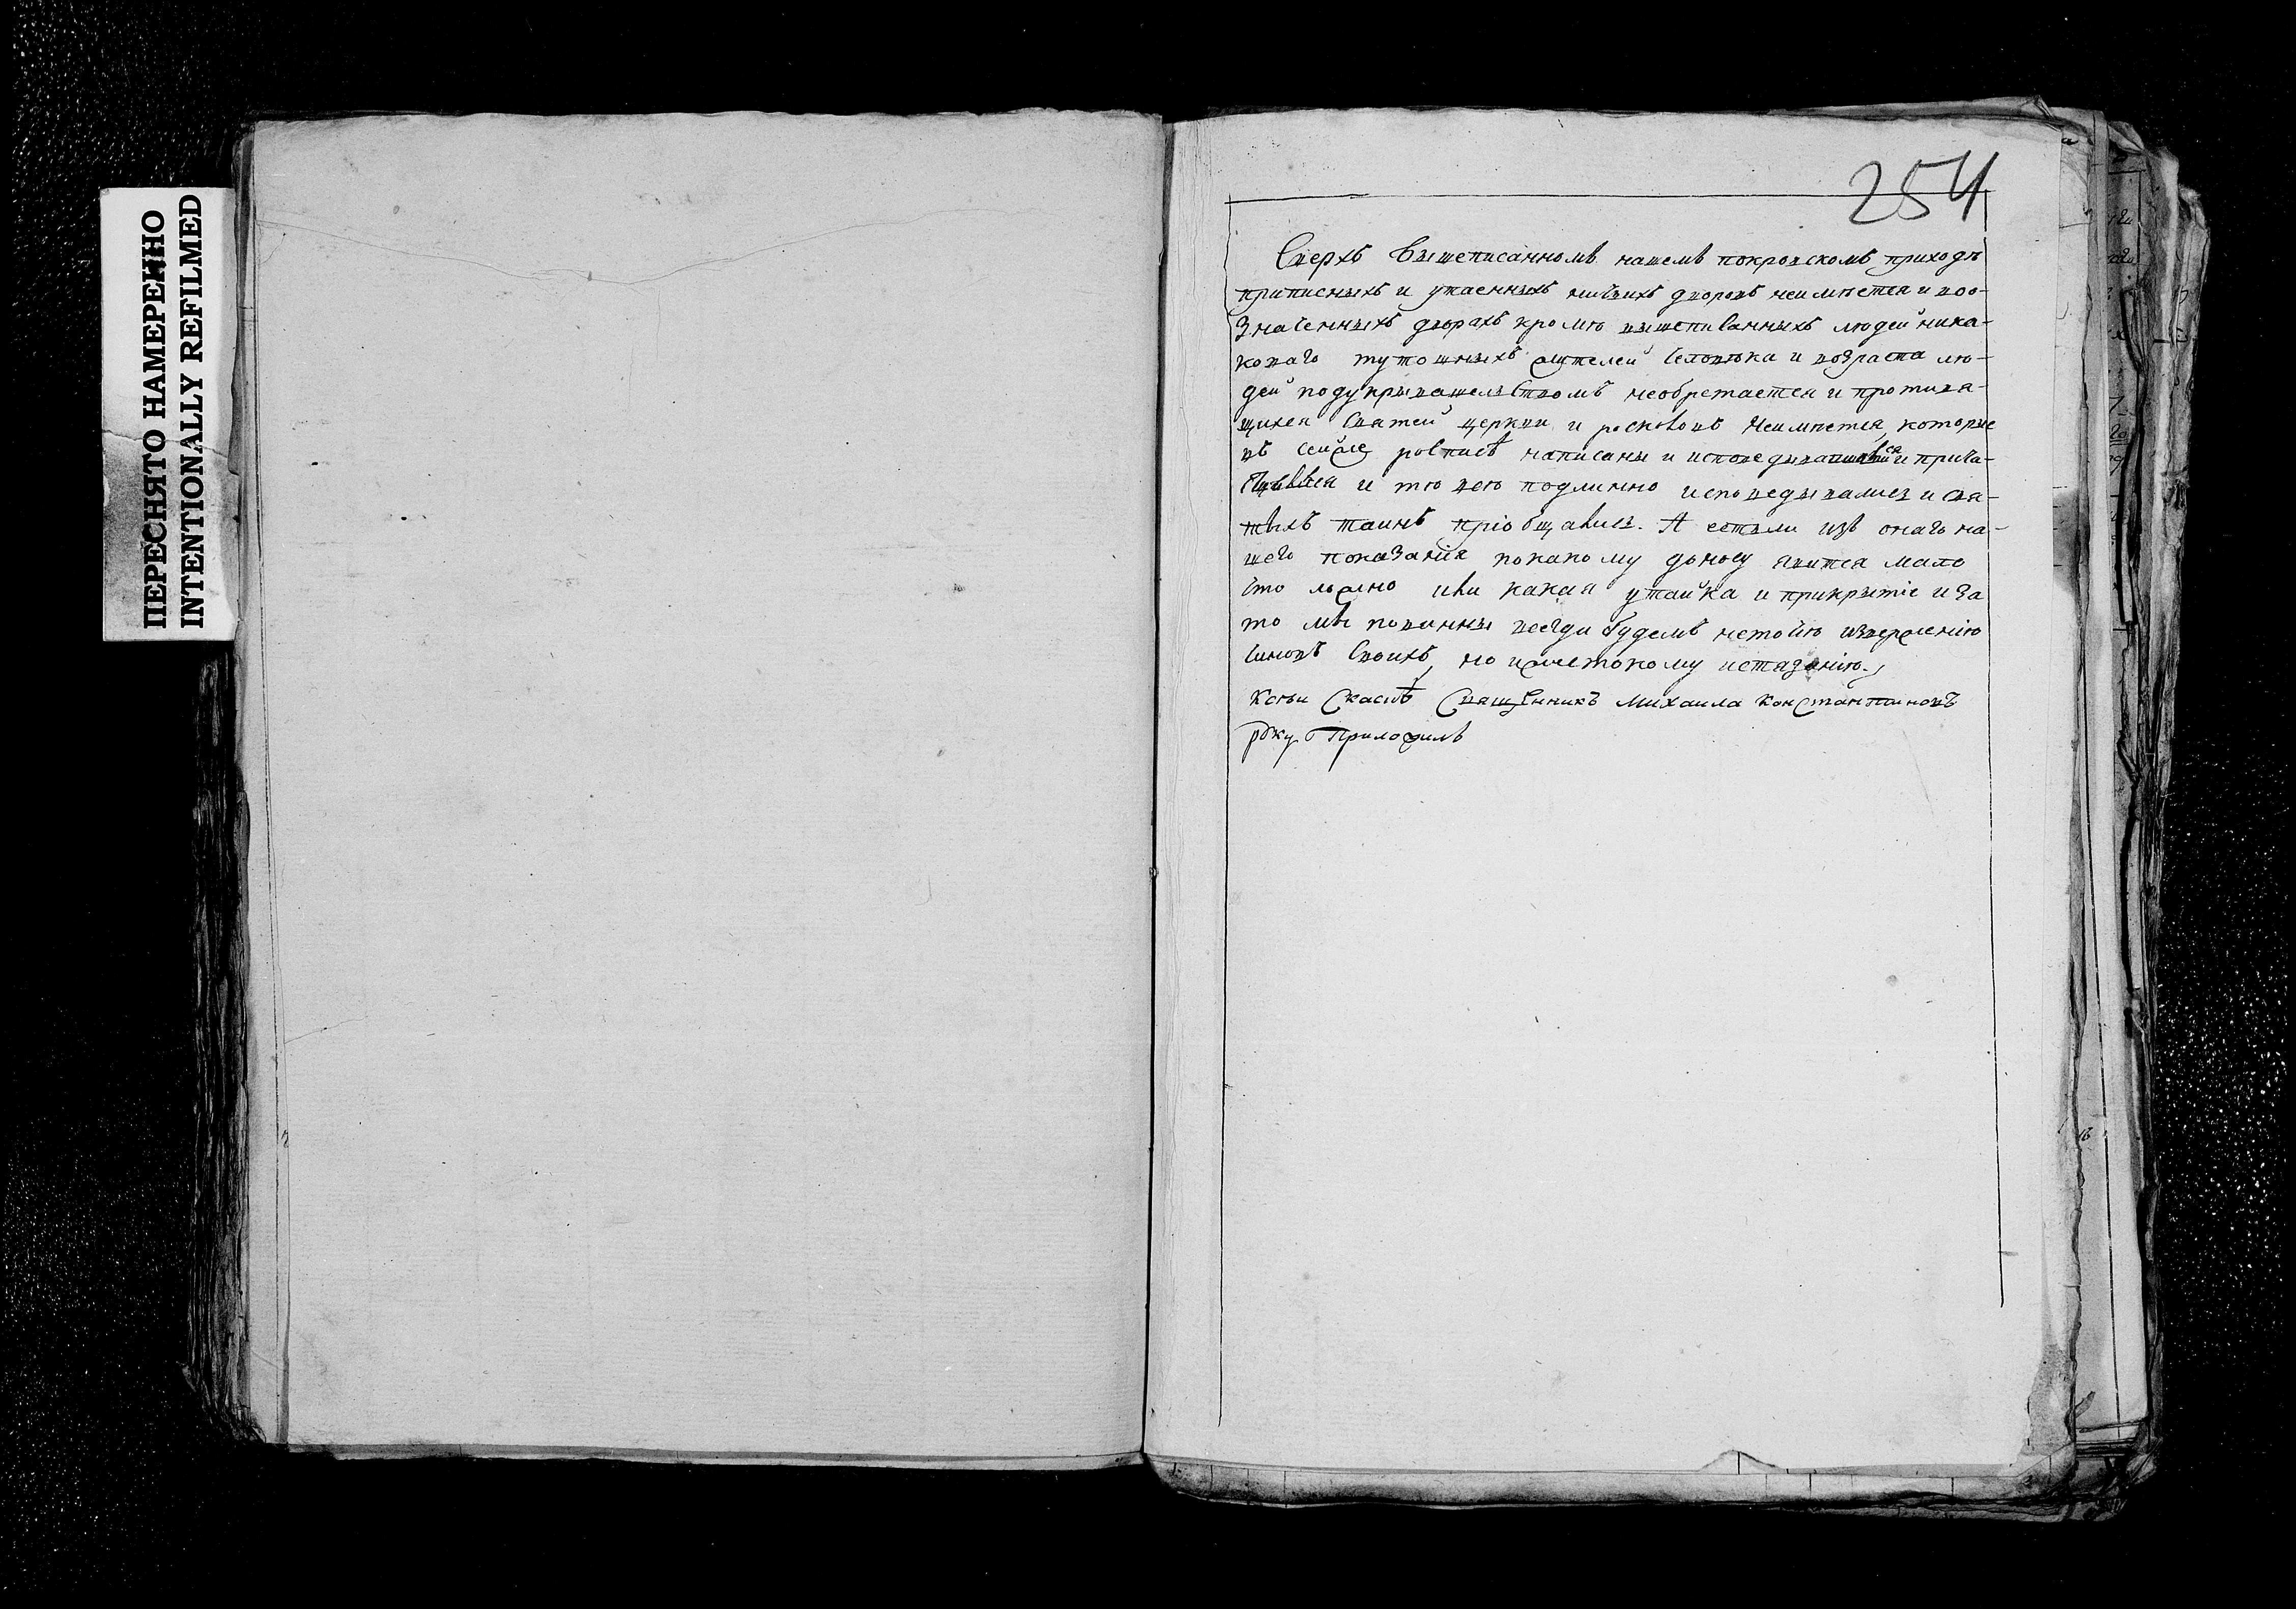 ПЕРЕСНЯТО НАМЕРЕННО
INTENTIONALLY REFILMED
254
Сверхъ вышеписанномъ нашемъ покровскомъ приходѣ
приписныхъ и утаенныхъ ничьихъ дворовъ неимѣется и воо-
значенныхъ дворахъ кромѣ вышеписанныхъ людей ника-
коваго тутошныхъ жителей человѣка и возраста лю-
дей подукрывательствомъ необретается и противя-
щихся святей церкви и росколовъ неимѣется, которые
въ сейже росписѣ написаны и исповедывался и прича-
щався и тѣ всѣ подлинно исповедывались и свя-
тыхъ таинъ пріобщались. А естьли изъ онагѡ на-
шего показанія покакому доносу явится мало
что ложно или какая утайка и прикрытіе и за
то мы повинны всегди будемъ неточію изверженію
чиновъ своихъ, но и жестокому истязанію.
Ксеи скаскѣ священникъ Михаила Константиновъ
рꙋку приложилъ